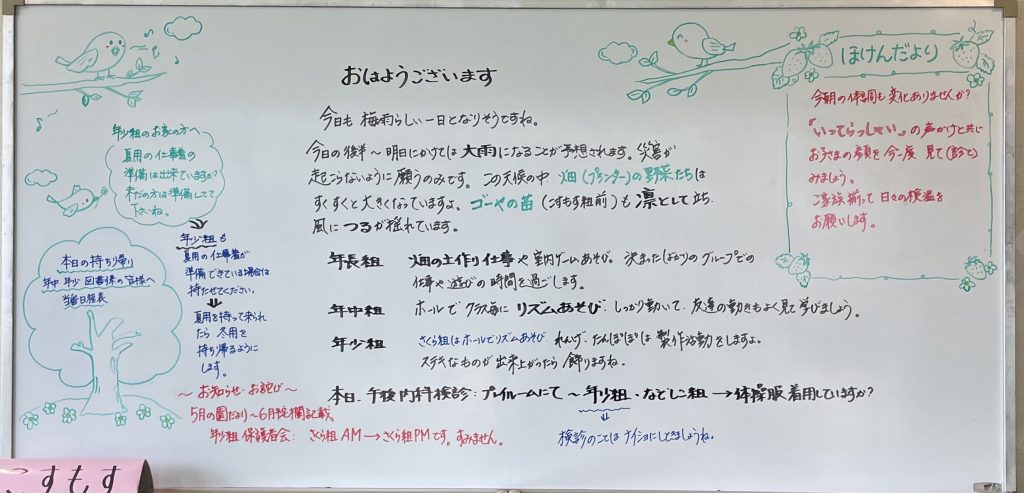 おはようございます
今日も 梅雨らしい一日となりそうですね。
今日の後半～明日にかけては大雨になることが予想されます。災害が
起こらないように願うのみです。この天候の中、畑(プランター)の野菜たちは
すくすくと大きくなっていますよ。ゴーヤの苗(こすもす組前)も凛として立ち、
風につるが揺れています。
年長組 畑の土作り仕事や室内ゲームあそび。決まった のグループでの
仕事や遊びの時間を過ごします。
年中組 ホールでクラス毎にリズムあそび、しっかり動いて、友達の動きもよく見て学びましょう。
年少組 さくら組はホールでリズムあそび、れんげ・たんぽぽは製作活動をしますよ。
ステキなものが出来上がったら飾りますね。
本日、午後内科検診:プレイルームにて～年少組・なでしこ組→体操服着用していますか?
検診のことはナイショにしておきましょうね。
年少組のお家の方へ
夏用の仕事着の
準備は出来ていますか?
まだの方は準備して
下さいね。
年少組も
夏用の仕事着が
準備できている場合は
持たせてください。
夏用を持って来られ
たら冬用を
持ち帰るように
します。
本日の持ち帰り
年中 年少 図書係の皆様へ
当番日程表
～お知らせ・お詫び～
5月の園だより～6月予定欄記載、
年少組 保護者会: さくら組AM→さくら組PMです。すみません。
ほけんだより
今朝の体調も変化ありませんか?
『いってらっしゃい』の声かけと共に
お子さまの顔を今一度 見て(診て)
みましょう。
ご家族揃って日々の検温を
お願いします。
こすもす